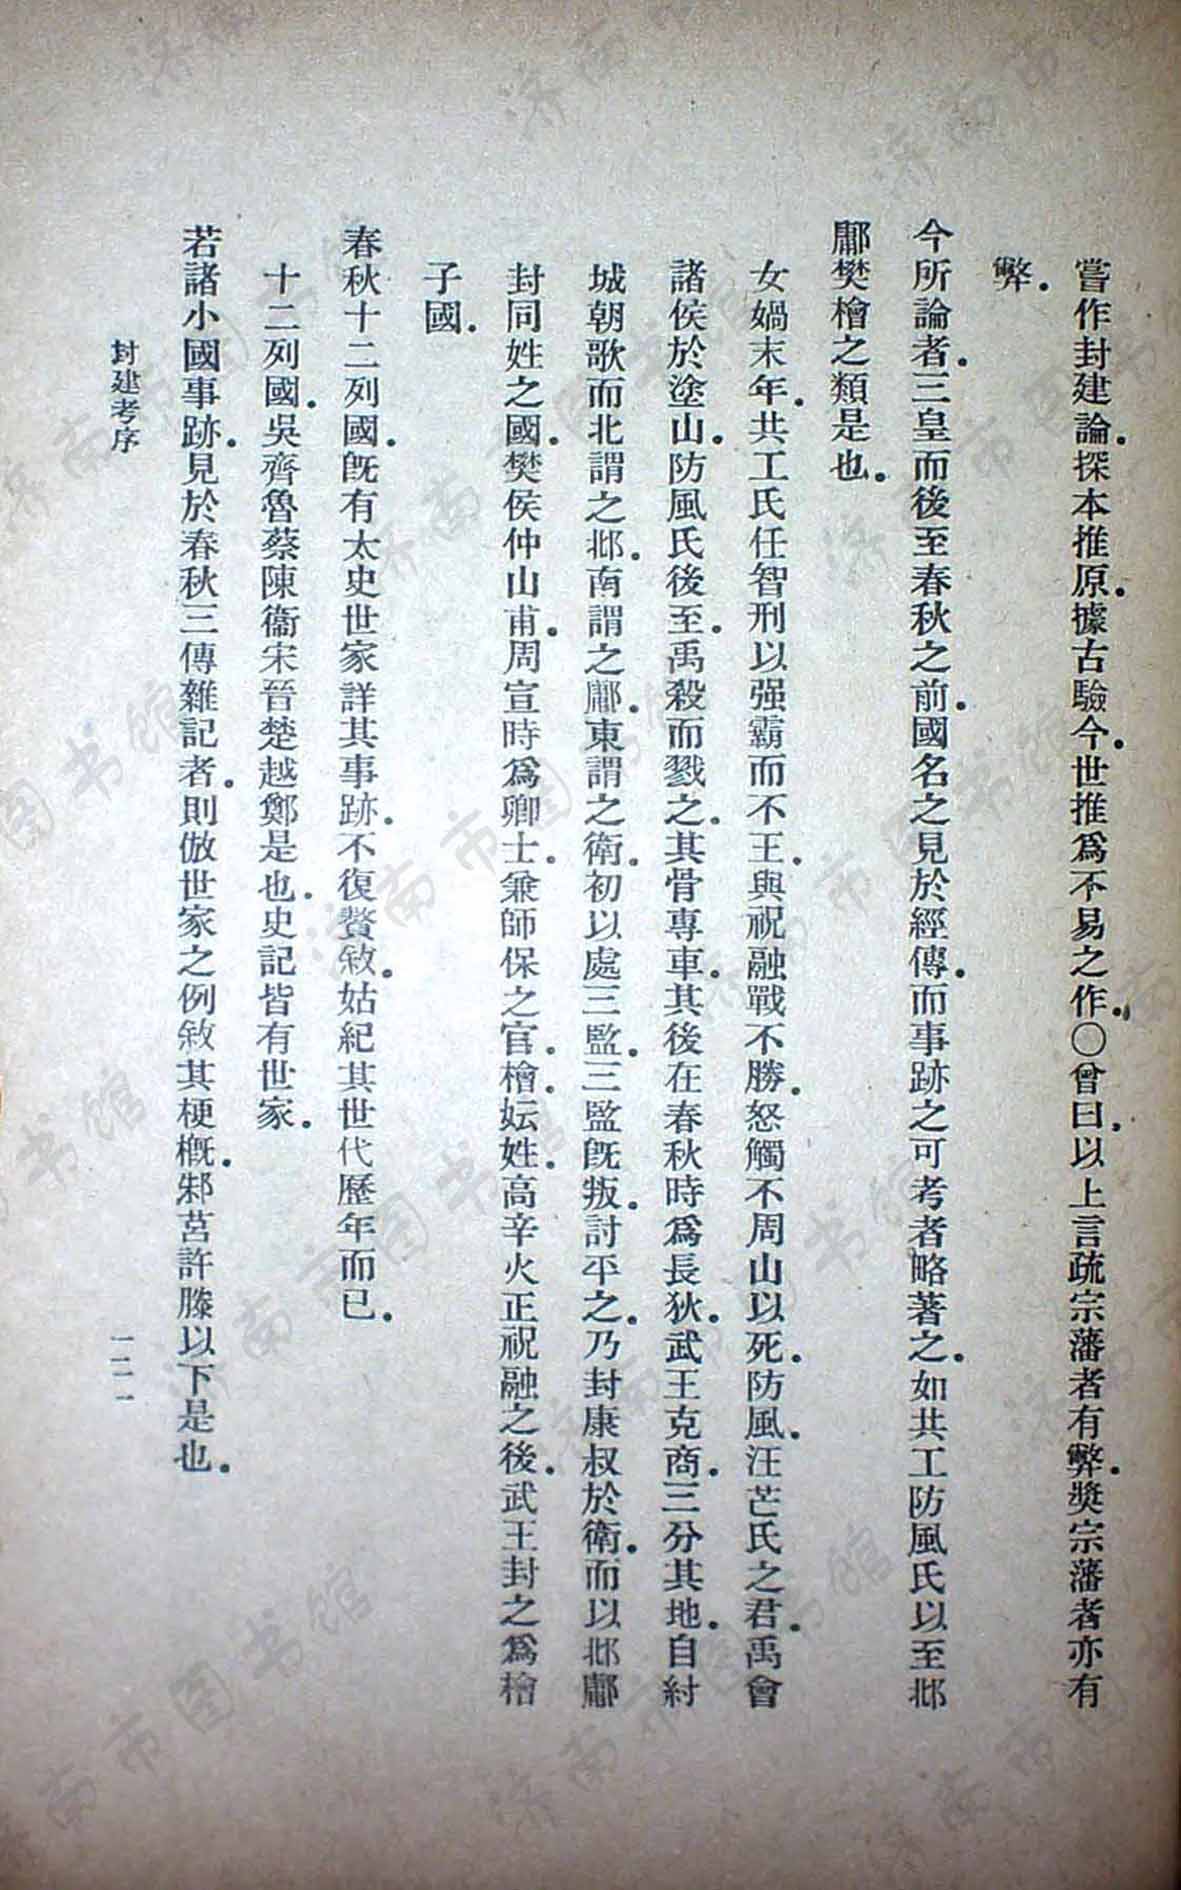 嘗作封建論.探本推原.據古驗今.世推爲不易之作.〇曾曰.以上言疏宗藩者有弊.獎宗藩者亦有
弊.
今所論者.三皇而後至春秋之前.國名之見於經傳.而事跡之可考者略著之.如共工防風氏以至邶
鄘樊檜之類是也.
女媧末年.共工氏任智刑以强霸而不王.與祝融戰不勝.怒觸不周山以死.防風.汪芒氏之君.禹會
諸侯於塗山.防風氏後至.禹殺而戮之.其骨專車.其後在春秋時爲長狄.武王克商.三分其地.自紂
城朝歌而北謂之邶.南謂之鄘.東謂之衛.初以處三監.三監旣叛.討平之.乃封康叔於衛.而以邶鄘
封同姓之國.樊侯仲山甫.周宣時爲卿士.兼師保之官.檜.妘姓.高辛火正祝融之後.武王封之爲檜
子國.
春秋十二列國.旣有太史世家詳其事跡.不復贅敘.姑紀其世代歷年而已.
十二列國.吳齊魯蔡陳衞宋晉楚越鄭是也.史記皆有世家.
若諸小國事跡.見於春秋三傳雜記者.則倣世家之例敘其梗槪.邾莒許滕以下是也.
封建考序
一二一
济南市图书馆